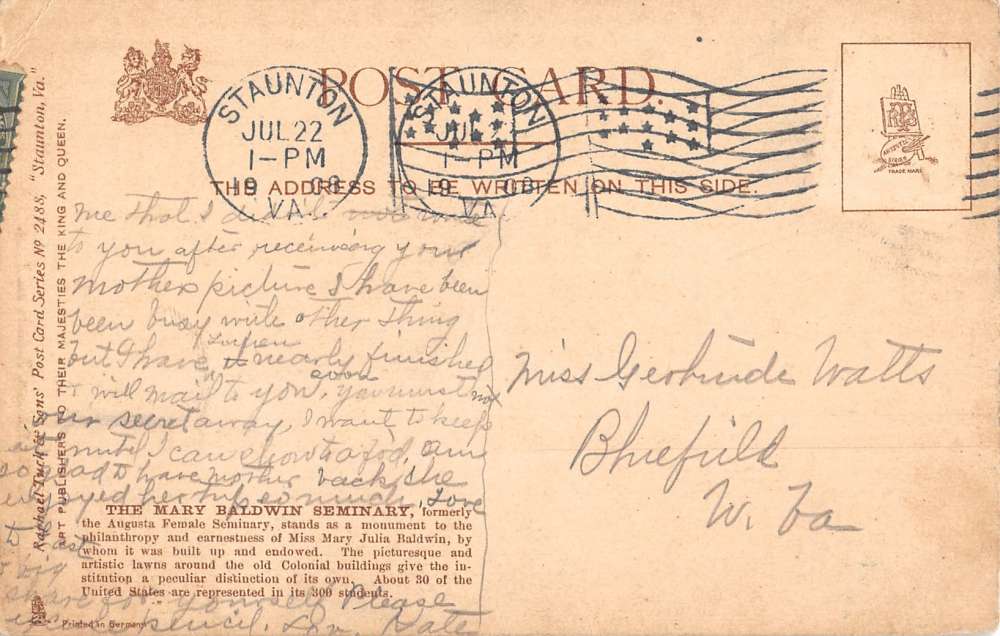 POST CARD.
STAUNTON
JUL 22
1-PM
19 08
VA.
STAUNTON
JUL 2
1-PM
19 08
VA.
THE ADDRESS TO BE WRITTEN ON THIS SIDE.
TRADE MARK
Raphael Tuck & Sons' Post Card Series No 2488, "Staunton, Va."
ART PUBLISHERS TO THEIR MAJESTIES THE KING AND QUEEN.
me that I
to you after receiving your
mother picture I have been
been busy with other thing
but I have nearly finished
will mail to you, soon you must not
our secret away, I want to keep
it until I can show to
so glad to have mother back, she
enjoyed her trip so much, Love
to
THE MARY BALDWIN SEMINARY, formerly
the Augusta Female Seminary, stands as a monument to the
philanthropy and earnestness of Miss Mary Julia Baldwin, by
whom it was built up and endowed. The picturesque and
artistic lawns around the old Colonial buildings give the in-
stitution a peculiar distinction of its own. About 30 of the
United States are represented in its 300 students.
share for yourself Please
pencil. Kate
Printed in Germany
Miss Gertrude Watts
Bluefield
W. Va